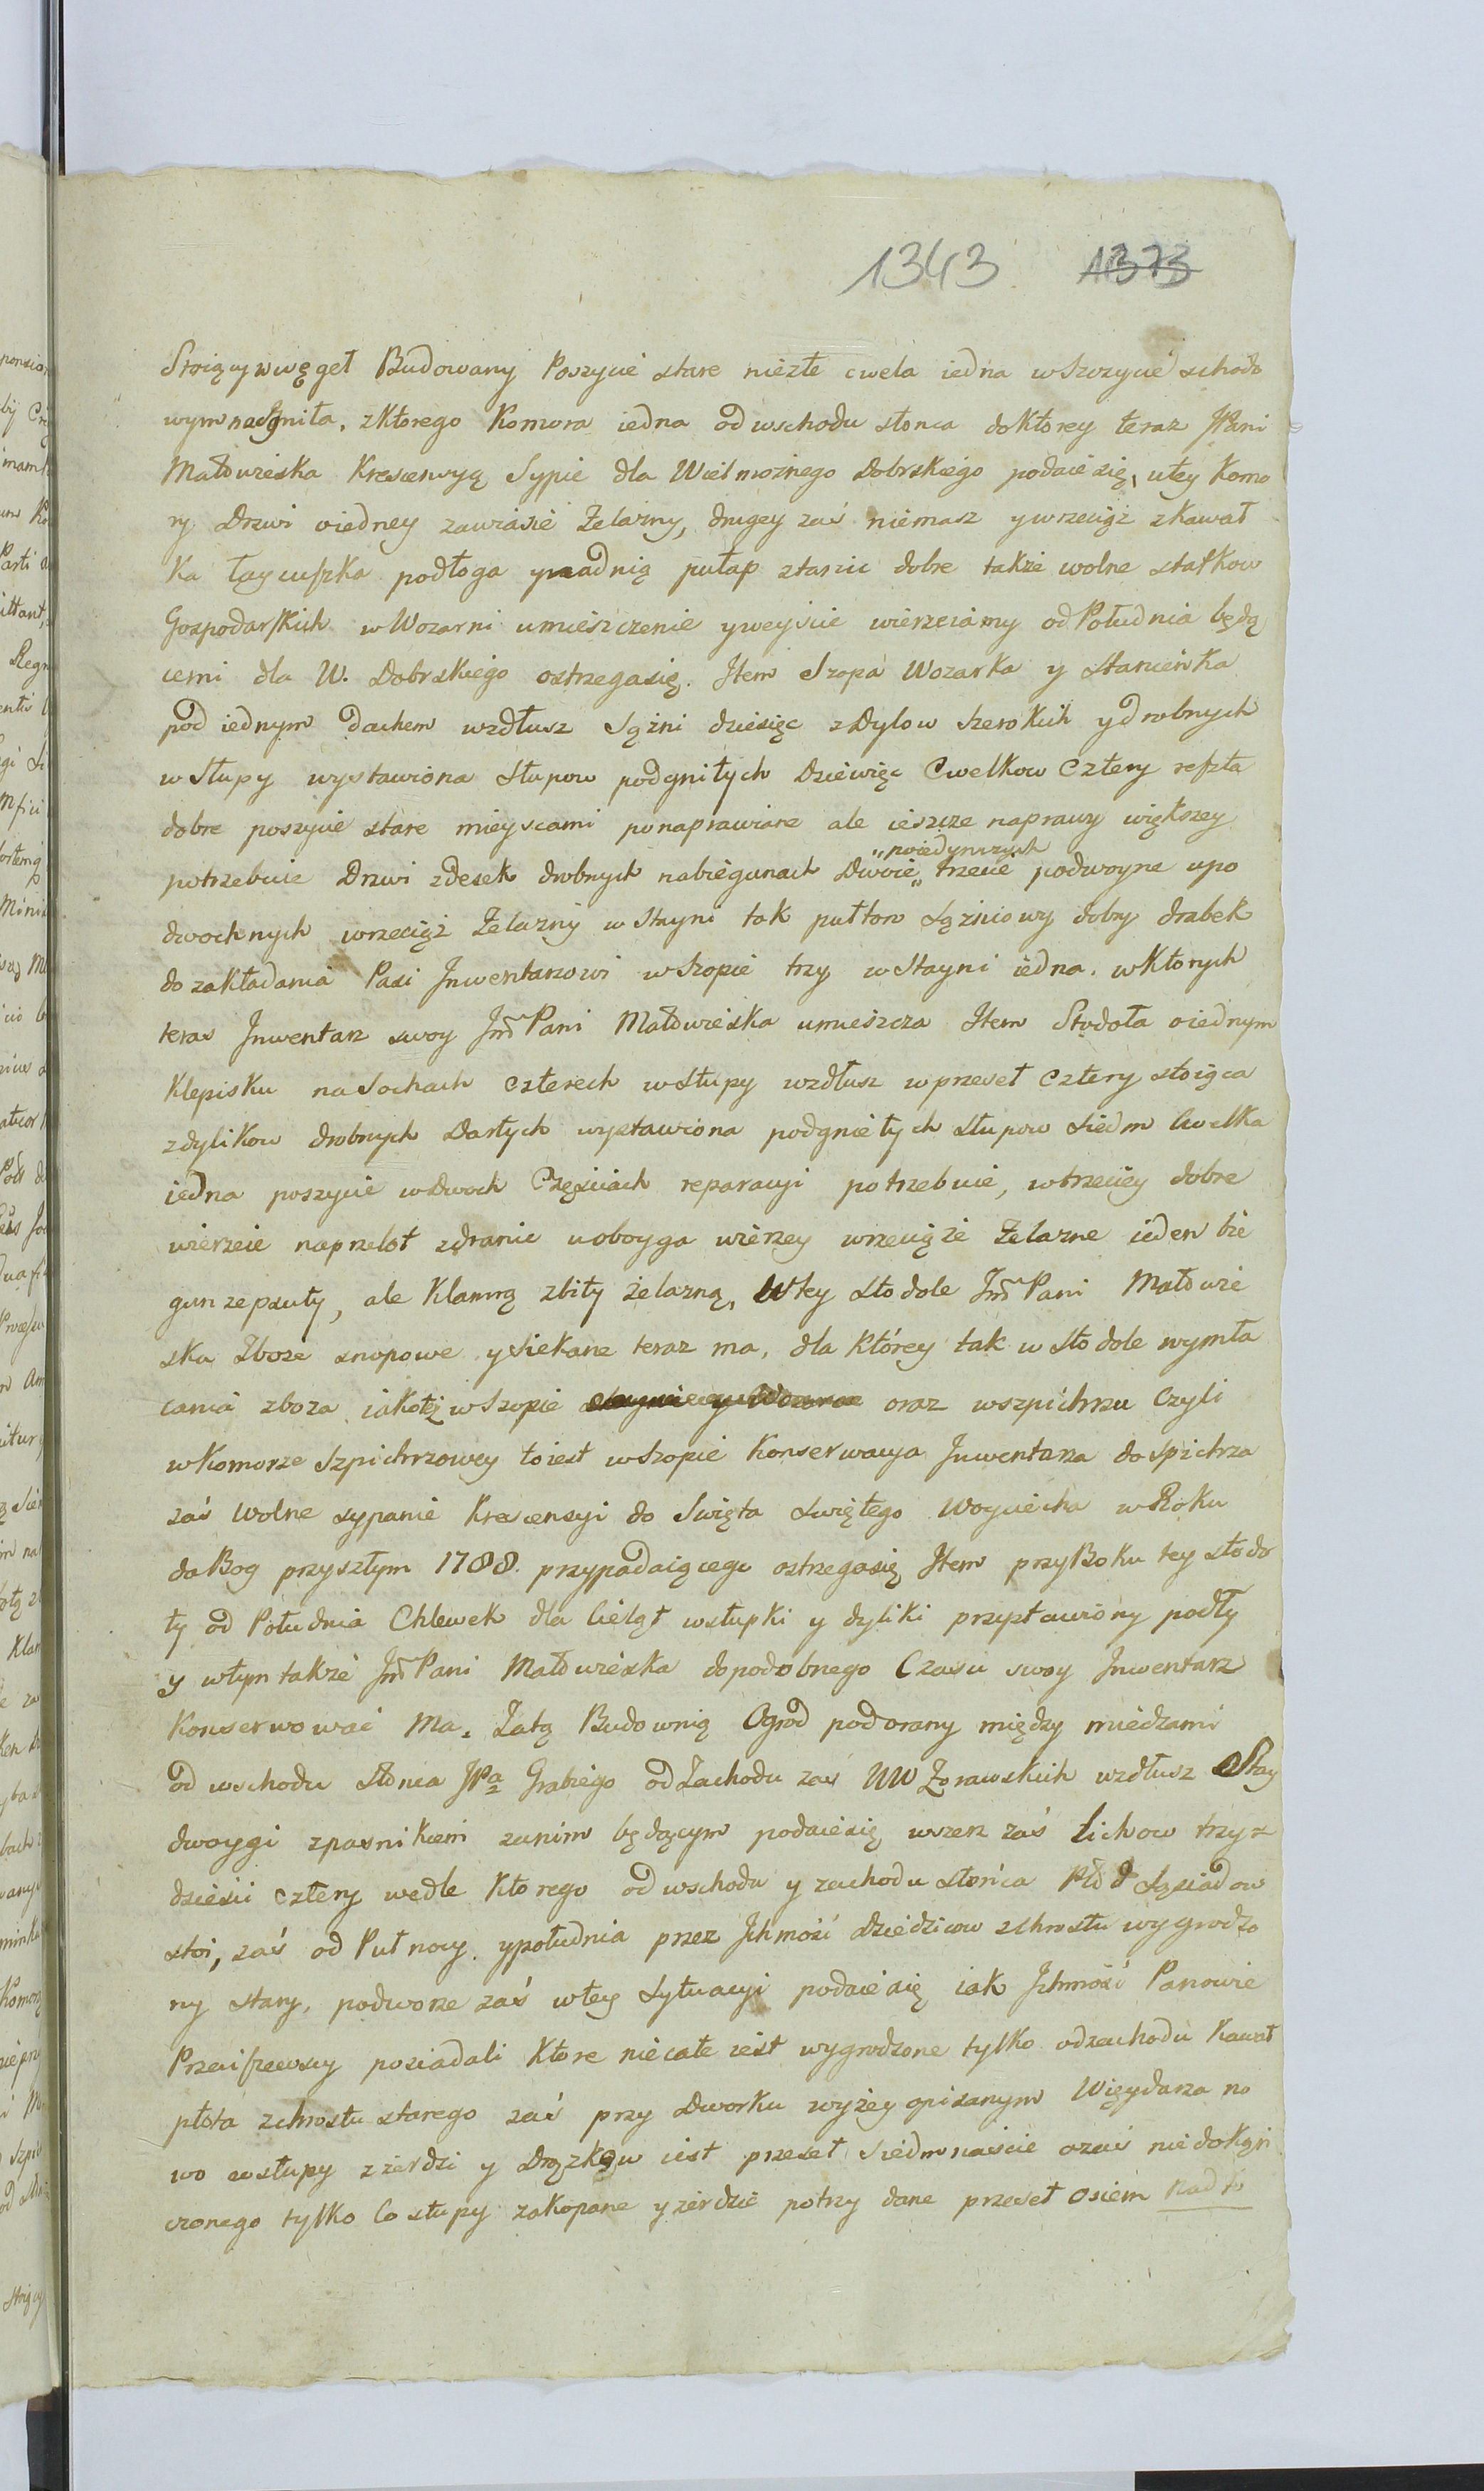 1343 1373
Stoiący w węgeł Budowany Poszycie stare niezłe cwela iedna w Szczycie schodo
wym nadgniła, z ktorego Komora iedna od wschodu słonca do ktorey teraz JPani
Małowieska Krescencyą Sypie dla Wielmożnego Dobrskiego podaie się, w tey Komo
ry Drzwi o iedney zawiasie Żelazny, drugey zaś niemasz y wrzeciąż z kawał
ka łaycuszka podłoga y pułap z tarcic dobre także wolne statkow
Gospodarskich w Wozarni umieszczenie y weyscie wierzeiamy od Południa będą
cemi dla W. Dobrskiego ostrzega się. Item Szopa Wozarka y Staneńka
pod iednym Dachem wzdłusz Sążni dziesięc z Dylow szerokich y drobnych
w Słupy wystawiona słupow podgniłych Dziewięc Cwelkow Cztery reszta
dobre poszycie stare mieyscami ponaprawiane ale ieszcze naprawy większey
poiedynczych
potrzebuie Drzwi z desek drobnych na biegunach Dwoie trzecie podwoyne u po
dwochnych wrzeciąż Żelazny w Stayni tok pułtor sążniowy dobry drabek
do zakładania Pasi Jnwentarzowi w Szopie trzy w Stayni iedna. w Ktorych
teras Jnwentarz swoy Jmć Pani Małowieska umieszcza Item Stodoła o iednym
Klepisku na Sochach czterech w słupy wzdłusz w przeseł cztery stoiąca
z dylikow drobnych Dartych wystawiona podgniełych słupow siedm Cwelka
iedna poszycie w Dwoch Częściach reparacyi potrzebuie, w trzeciey dobre
wierzeie na przelot z dranic u oboyga wierzey wrzeciąże Żelazne ieden bie
gun zepsuty, ale Klamrą zbity żelazną, W tey stodole Jmć Pani Małowie
ska Zboże snopowe y siekane teraz ma, dla ktorey tak w stodole wymła
cania zboża iakoteż w Szopie oraz w szpichrzu Czyli
w Komorze Szpichrzowey to iest w Szopie Konserwacya Jnwentarza do Spichrza
zaś Wolne sypanie Krescensyi do Swięta swiętego Woyciecha w Roku
da Bog przyszłym 1788. przypadaiącego ostrzega się Item przy Boku tey stodo
ły od Południa Chlewek dla Cieląt w słupki y dyliki przystawiony podły
y w tym także Jmć Pani Małowieska do podobnego Czasu swoy Jnwentarz
Konserwować Ma. Za tą Budownią Ogrod podorany między miedzami
od wschodu słonca JPa Grabiego od Zachodu zaś WW Żorawskich wzdłusz Stay
dwoygi z pasnikiem za nim będącym podaie się wszerz zaś Lichow trzy
dziesci cztery wedle którego od wschodu y zachodu słońca Płod sąsiadow
stoi, zaś od Pułnocy y południa przez Ichmość Dziedzicow z chrostu wygrodzo
ny stary, podworze zaś w tey Sytuacyi podaie się iak Ichmość Panowie
Przeciszewscy posiadali Ktore niecałe iest wygrodzone tylko od zachodu Kawał
płota z chrostu starego zaś przy Dworku wyżey opisanym Więydarza no
wo w słupy z żerdzi y Drązkow iest przeseł siedmnaście a zaś niedokąń
czonego tylko Co słupy zakopane y żerdzie po trzy dane przeseł osiem nad to